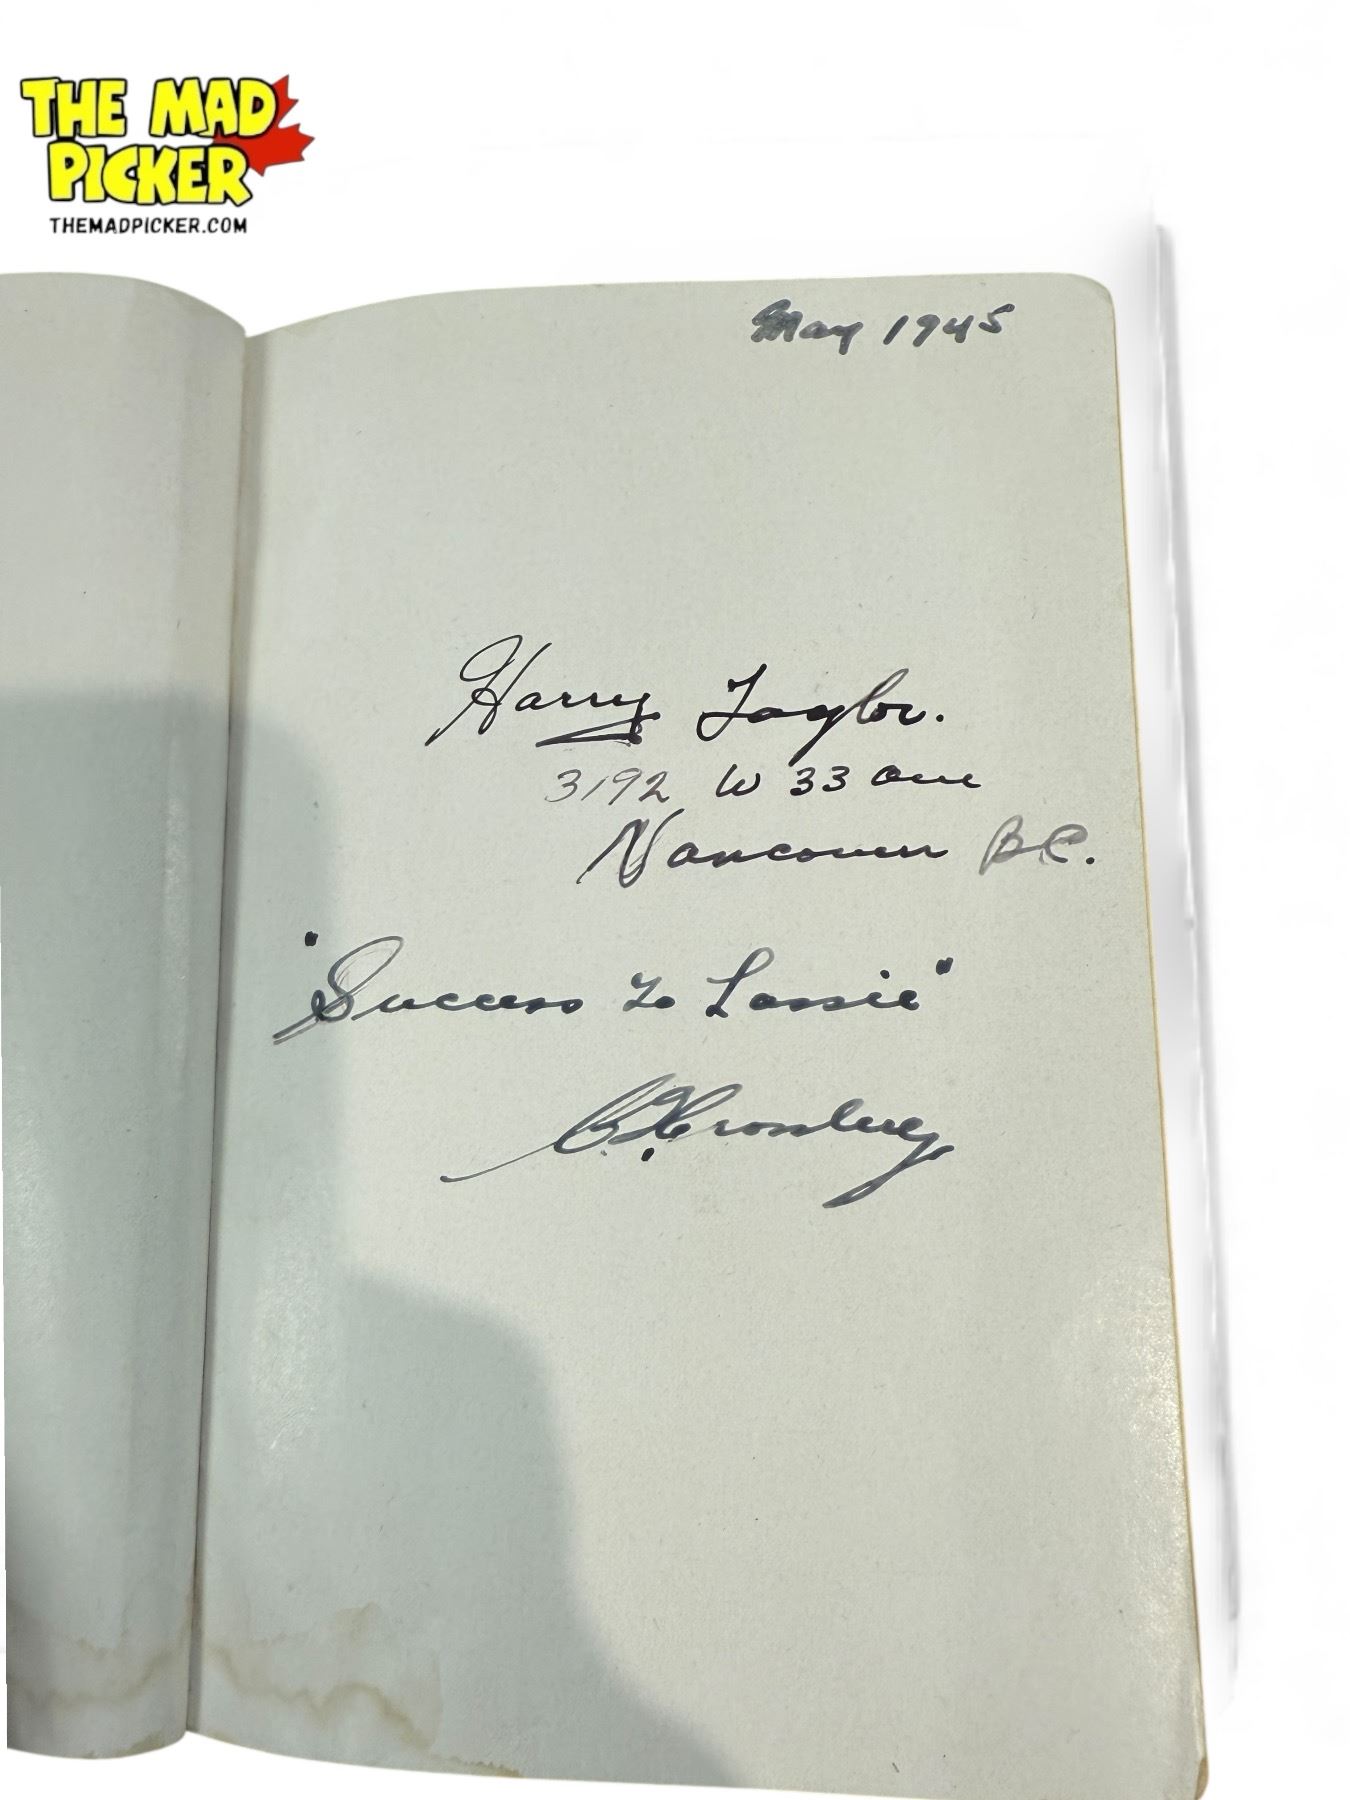 THE MAD
PICKER
THEMADPICKER.COM
May 1945
Harry Taylor.
3192 W 33 Ave
Vancouver B.C.
"Success To Lassie"